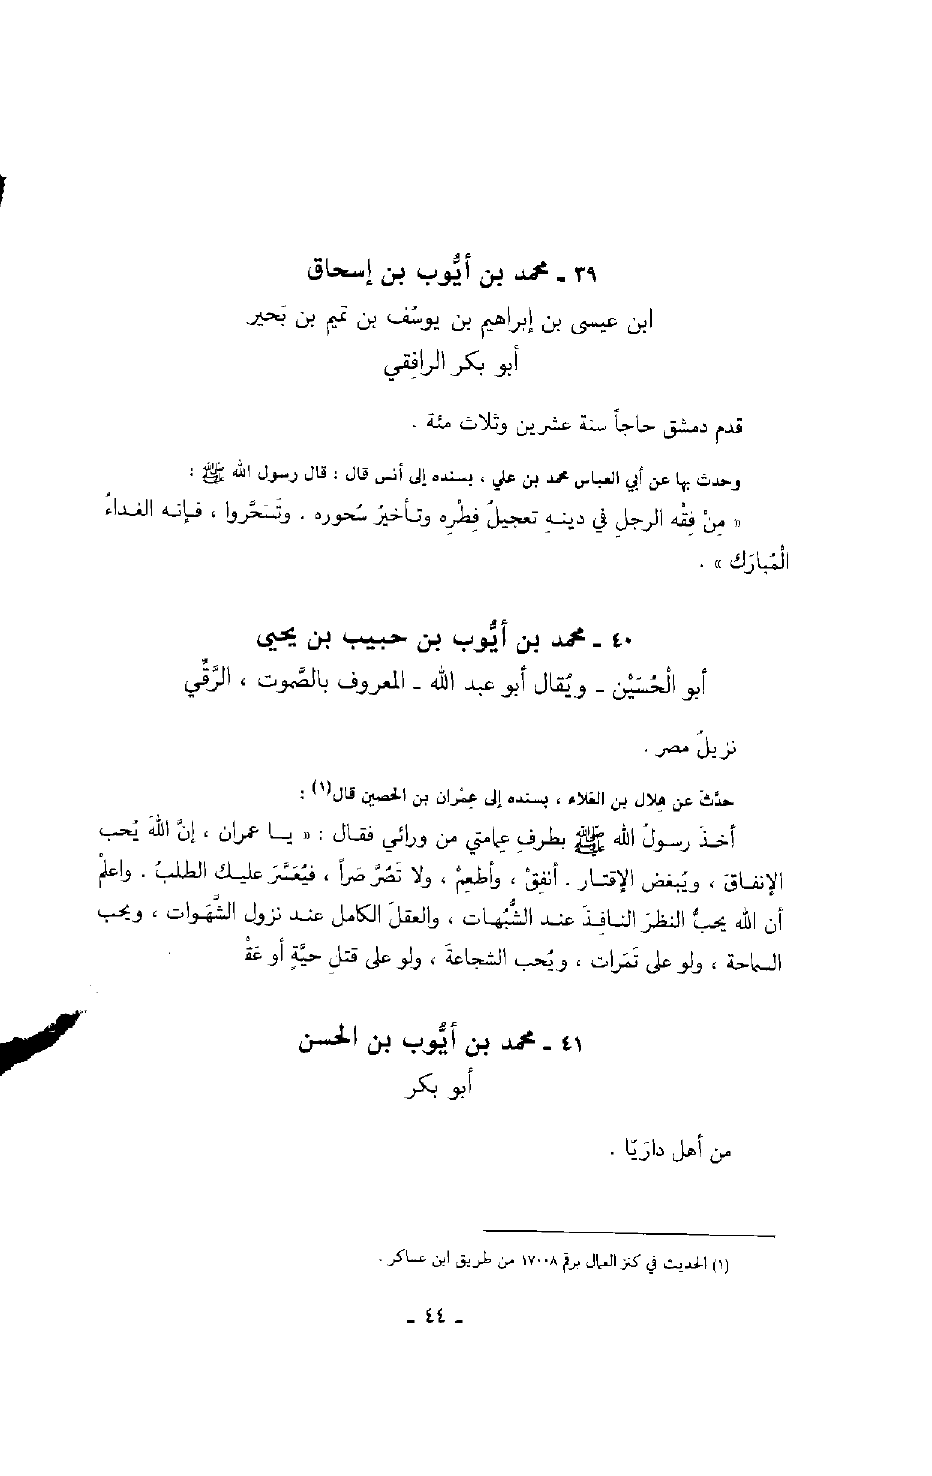 ٣٩ ـ محمد بن أيُّوب بن إسحاق
ابن عيسى بن إبراهيم بن يوسُف بن تميم بن بَحير
أبو بكر الرافِقي
قدم دمشق حاجاً سنة عشرين وثلاث مئة .
وحدث بها عن أبي العباس محمد بن علي ، بسنده إلى أنس قال : قال رسول الله ﷺ :
« مِنْ فِقْه الرجلِ في دينـهِ تعجيلُ فِطْرِه وتـأخيرُ سُحوره . وتَسَحَّروا ، فـإنـه الغـداءُ
الْمُبارَك » .
٤٠ ـ محمد بن أيُّوب بن حبيب بن يحيى
أبو الْحُسَيْن ـ ويُقال أبو عبد الله ـ المعروف بالصَّموت ، الرَّقِّي
نزيلُ مصر .
حدَّثَ عن هلال بن العَلاء ، بسنده إلى عِمْران بن الحصين قال(١) :
أخـذَ رسـولُ الله ﷺ بطرفِ عِمامتي من ورائي فقـال : « يـا عمران ، إنَّ اللهَ يُحب
الإنفـاقَ ، ويُبغض الإقتـار . أنفِقْ ، وأطعِمْ ، ولا تَصُرَّ صَراً ، فيُعَسَّرَ عليـك الطلبُ . واعلمْ
أن الله يحبُّ النظرَ النـافـذَ عنـد الشُّبُهـات ، والعقلَ الكامل عنـد نزول الشَّهَوات ، ويحب
السماحة ، ولو على تَمَرات ، ويُحب الشجاعةَ ، ولو على قتلِ حيَّةٍ أو عَقْ
٤١ ـ محمد بن أيُّوب بن الحسن
أبو بكر
من أهل دارَيّا .
(١) الحديث في كنز العمال برقم ١٧٠٠٨ من طريق ابن عساكر .
ـ ٤٤ ـ